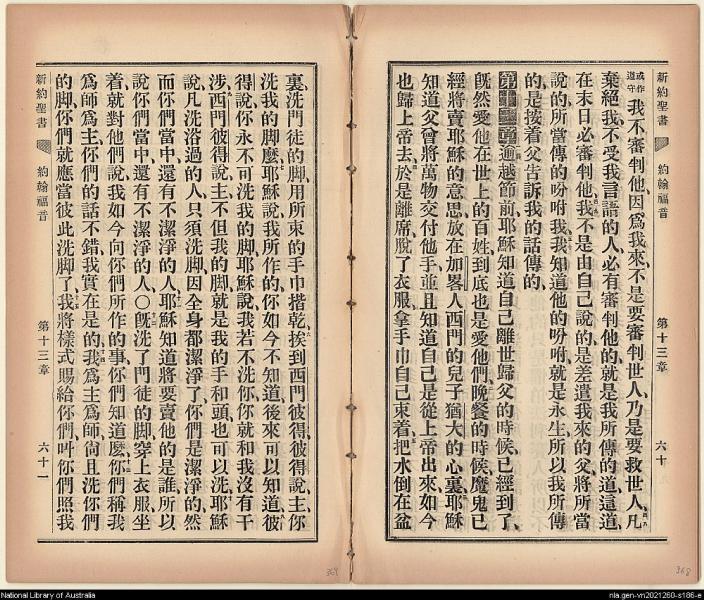 新約聖書 約翰福音 第十三章 六十
或作遵守我不審判他、因爲我來不是要審判世人、乃是要救世人、凡
棄絕我、不受我言語的人、必有審判他的、就是我所傳的道、這道
在末日必審判他、我不是由自己說的、是差遣我來的父、將所當
說的所當傳的吩咐我、我知道他的吩咐就是永生、所以我所傳
的、是按着父告訴我的話傳的、
第十三章逾越節前、耶穌知道自己離世歸父的時候、已經到了、
旣然愛他在世上的百姓、到底也是愛他們、晚餐的時候、魔鬼已
經將賣耶穌的意思放在加畧人西門的兒子猶大的心裏、耶穌
知道父曾將萬物交付他手、並且知道自己是從上帝出來、如今
也歸上帝去、於是離席、脫了衣服、拿手巾自己束着、把水倒在盆
裏、洗門徒的脚、用所束的手巾揩乾、挨到西門彼得、彼得說、主、你
洗我的脚麼、耶穌說、我所作的、你如今不知道、後來可以知道、彼
得說、你永不可洗我的脚、耶穌說、我若不洗你、你就和我沒有干
涉、西門彼得說、主、不但我的脚、就是我的手和頭、也可以洗、耶穌
說、凡洗浴過的人、只須洗脚、因全身都潔淨了、你們是潔淨的、然
而你們當中還有不潔淨的人、耶穌知道將要賣他的是誰、所以
說你們當中還有不潔淨的人、〇旣洗了門徒的脚、穿上衣服坐
着、就對他們說、我如今向你們所作的事、你們知道麼、你們稱我
爲師爲主、你們的話不錯、我實在是的、我爲主爲師、尙且洗你們
的脚、你們就應當彼此洗脚了、我將樣式賜給你們、叫你們照我
新約聖書 約翰福音 第十三章 六十一
369
368
National Library of Australia
nla.gen-vn2021260-s186-e